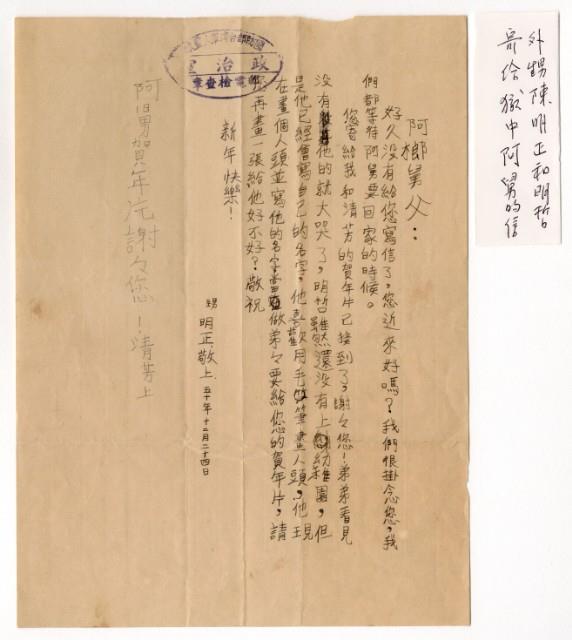 外甥陳明正和明哲
寄給獄中阿舅的信
政治室
郵電檢查章
阿榔舅父：
好久没有給您寫信了，您近來好嗎？我們很掛念您，我
們都等待阿舅要回家的時候。
您寄給我和清芳的賀年片已接到了，謝々您！弟弟看見
没有他的就大哭了，明哲雖然還没有上幼稚園，但
是他已經會寫自己的名字，他喜歡用毛筆畫人頭，他現
在畫個人頭並寫他的名字當做弟々要給您的賀年片，請
您再畫一張給他好不好？敬祝
新年快樂！
甥 明正敬上 五十年十二月二十四日
阿舅賀年片謝々您！清芳上